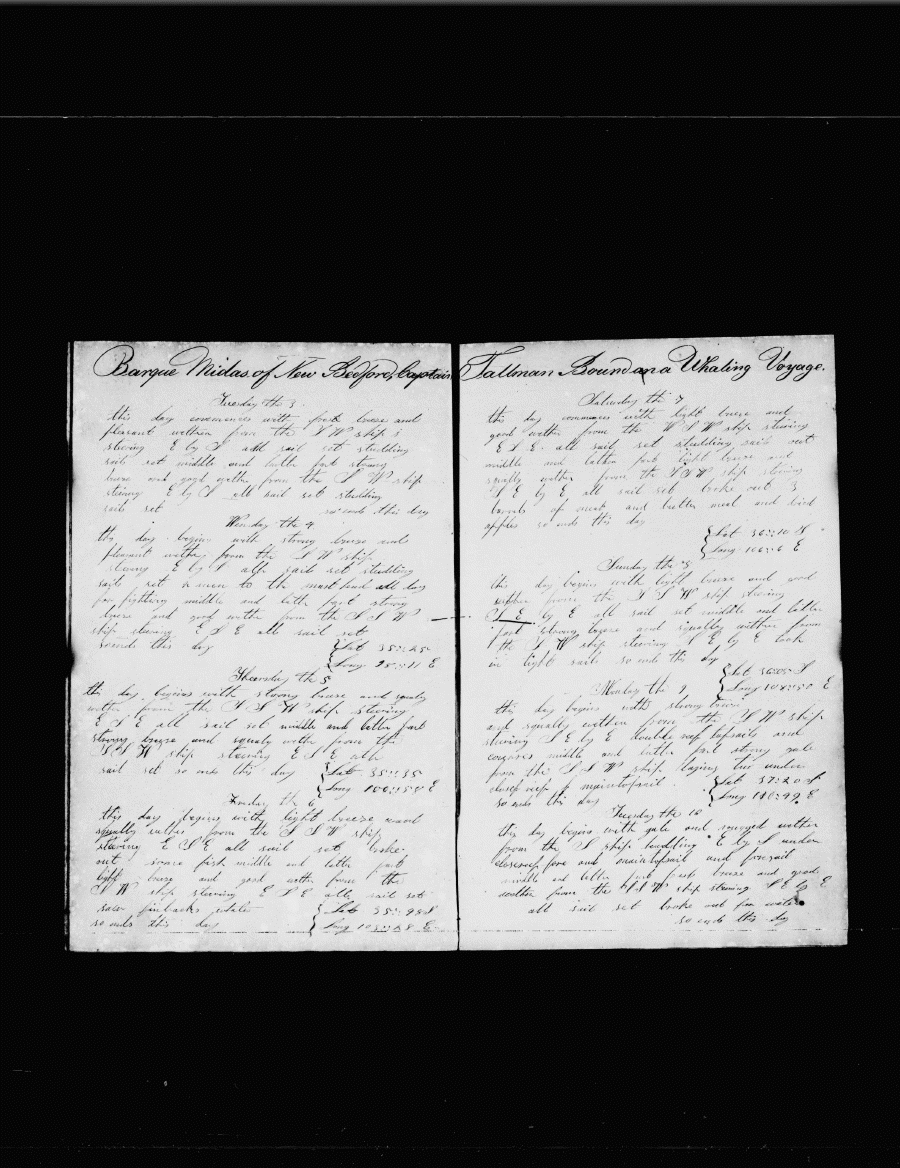 Barque Midas of New Bedford, Captain Tallman Bound on a Whaling Voyage.
Tuesday the 3
this day commences with fresh breeze and
pleasant wether from the S W ship
stering E by S all sail set studding
sail set middle and latter part strong
breze and good wether from the S W ship
stering E by S all sail set studding
sails set so ends this day
Wensday the 4
this day begins with strong breeze and
pleasant wether from the S W ship
stering E by S all sail set studding
sails set to the masthead all day
for middle and latter part strong
breze and good wether from the S S W
ship stering E S E all sail set
so ends this day Lat 35::25
Long 95::11 E
Thursday the 5
this day begins with strong breeze and squaly
wether from the S S W ship stering
E S E all sail set middle and letter part
strong breze and squaly wether from the
W S W ship stering E S E all
sail set so ends this day Lat 35::35
Long 100::54 E
Friday the 6
this day begins with light breeze and
squally wether from the S S W ship
stering E S E all sail set broke
out some fish middle and latter part
light breeze and good wether from the
S W ship steering E S E all sail set
saw finbacks
so ends this day Lat 35::48 S
Long 103::58 E
Saturday the 7
this day commences with light breeze and
good wether from the W S W ship stering
E S E all sail set studding sail set
middle and latter part light breeze and
squally wether from the S S W ship stering
S E by E all sail set broke out 3
barels of meat and butter meal and dried
apples so ends this day
Lat 36::10 S
Long 106::6 E
Sunday the 8
this day begins with light breeze and good
wether from the S S W ship stering
S E by E all sail set middle and latter
part strong breeze and squalley wether from
the S W ship stering S E by E took
in light sails so ends this day
Lat 36::05 S
Long 108::50 E
Monday the 9
this day begins with strong breeze
and squally wether from the S W ship
stering S E by E double reef topsails and
courses middle and latter part strong gale
from the S S W ship laying too under
closereef maintopsail Lat 37::20 S
so ends this day Long 110::49 E
Tuesday the 10
this day begins with gale and wether
from the S ship heading E by S under
closereef fore and maintopsail and foresail
middle and latter part fresh breeze and good
wether from the S S W ship stering S E by E
all sail set broke out for water
so ends this day